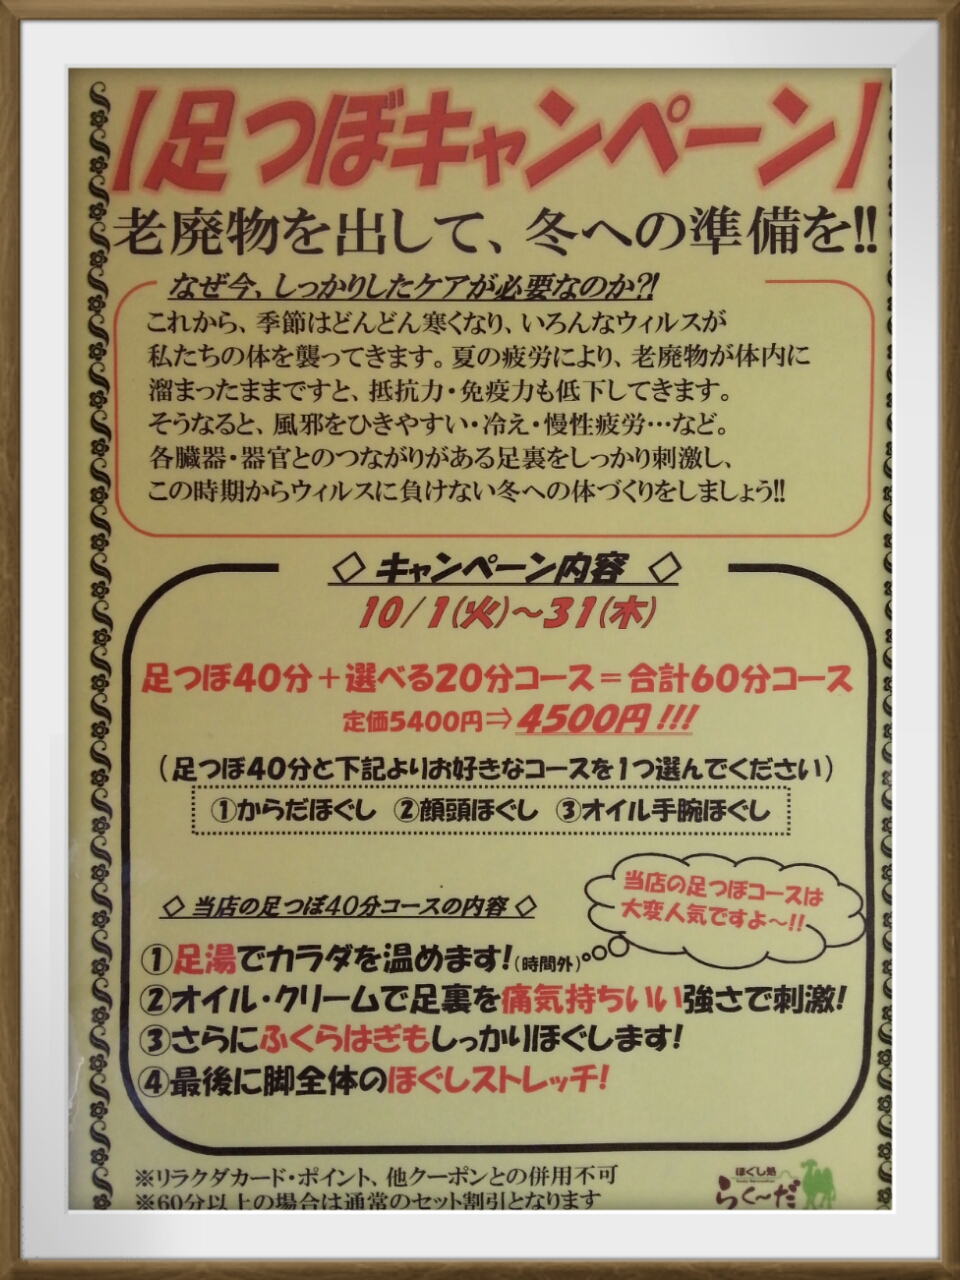 【足つぼキャンペーン】
老廃物を出して、冬への準備を!!
なぜ今、しっかりしたケアが必要なのか?!
これから、季節はどんどん寒くなり、いろんなウィルスが
私たちの体を襲ってきます。夏の疲労により、老廃物が体内に
溜まったままですと、抵抗力・免疫力も低下してきます。
そうなると、風邪をひきやすい・冷え・慢性疲労…など。
各臓器・器官とのつながりがある足裏をしっかり刺激し、
この時期からウィルスに負けない冬への体づくりをしましょう!!
◇ キャンペーン内容 ◇
10/1(火)～31(木)
足つぼ40分＋選べる20分コース＝合計60分コース
定価5400円⇒4500円!!!
(足つぼ40分と下記よりお好きなコースを1つ選んでください)
①からだほぐし ②顔頭ほぐし ③オイル手腕ほぐし
当店の足つぼコースは
大変人気ですよ～!!
◇ 当店の足つぼ40分コースの内容 ◇
①足湯でカラダを温めます!(時間外)
②オイル・クリームで足裏を痛気持ちいい強さで刺激!
③さらにふくらはぎもしっかりほぐします!
④最後に脚全体のほぐしストレッチ!
※リラクダカード・ポイント、他クーポンとの併用不可
※60分以上の場合は通常のセット割引となります
ほぐし処
らく～だ